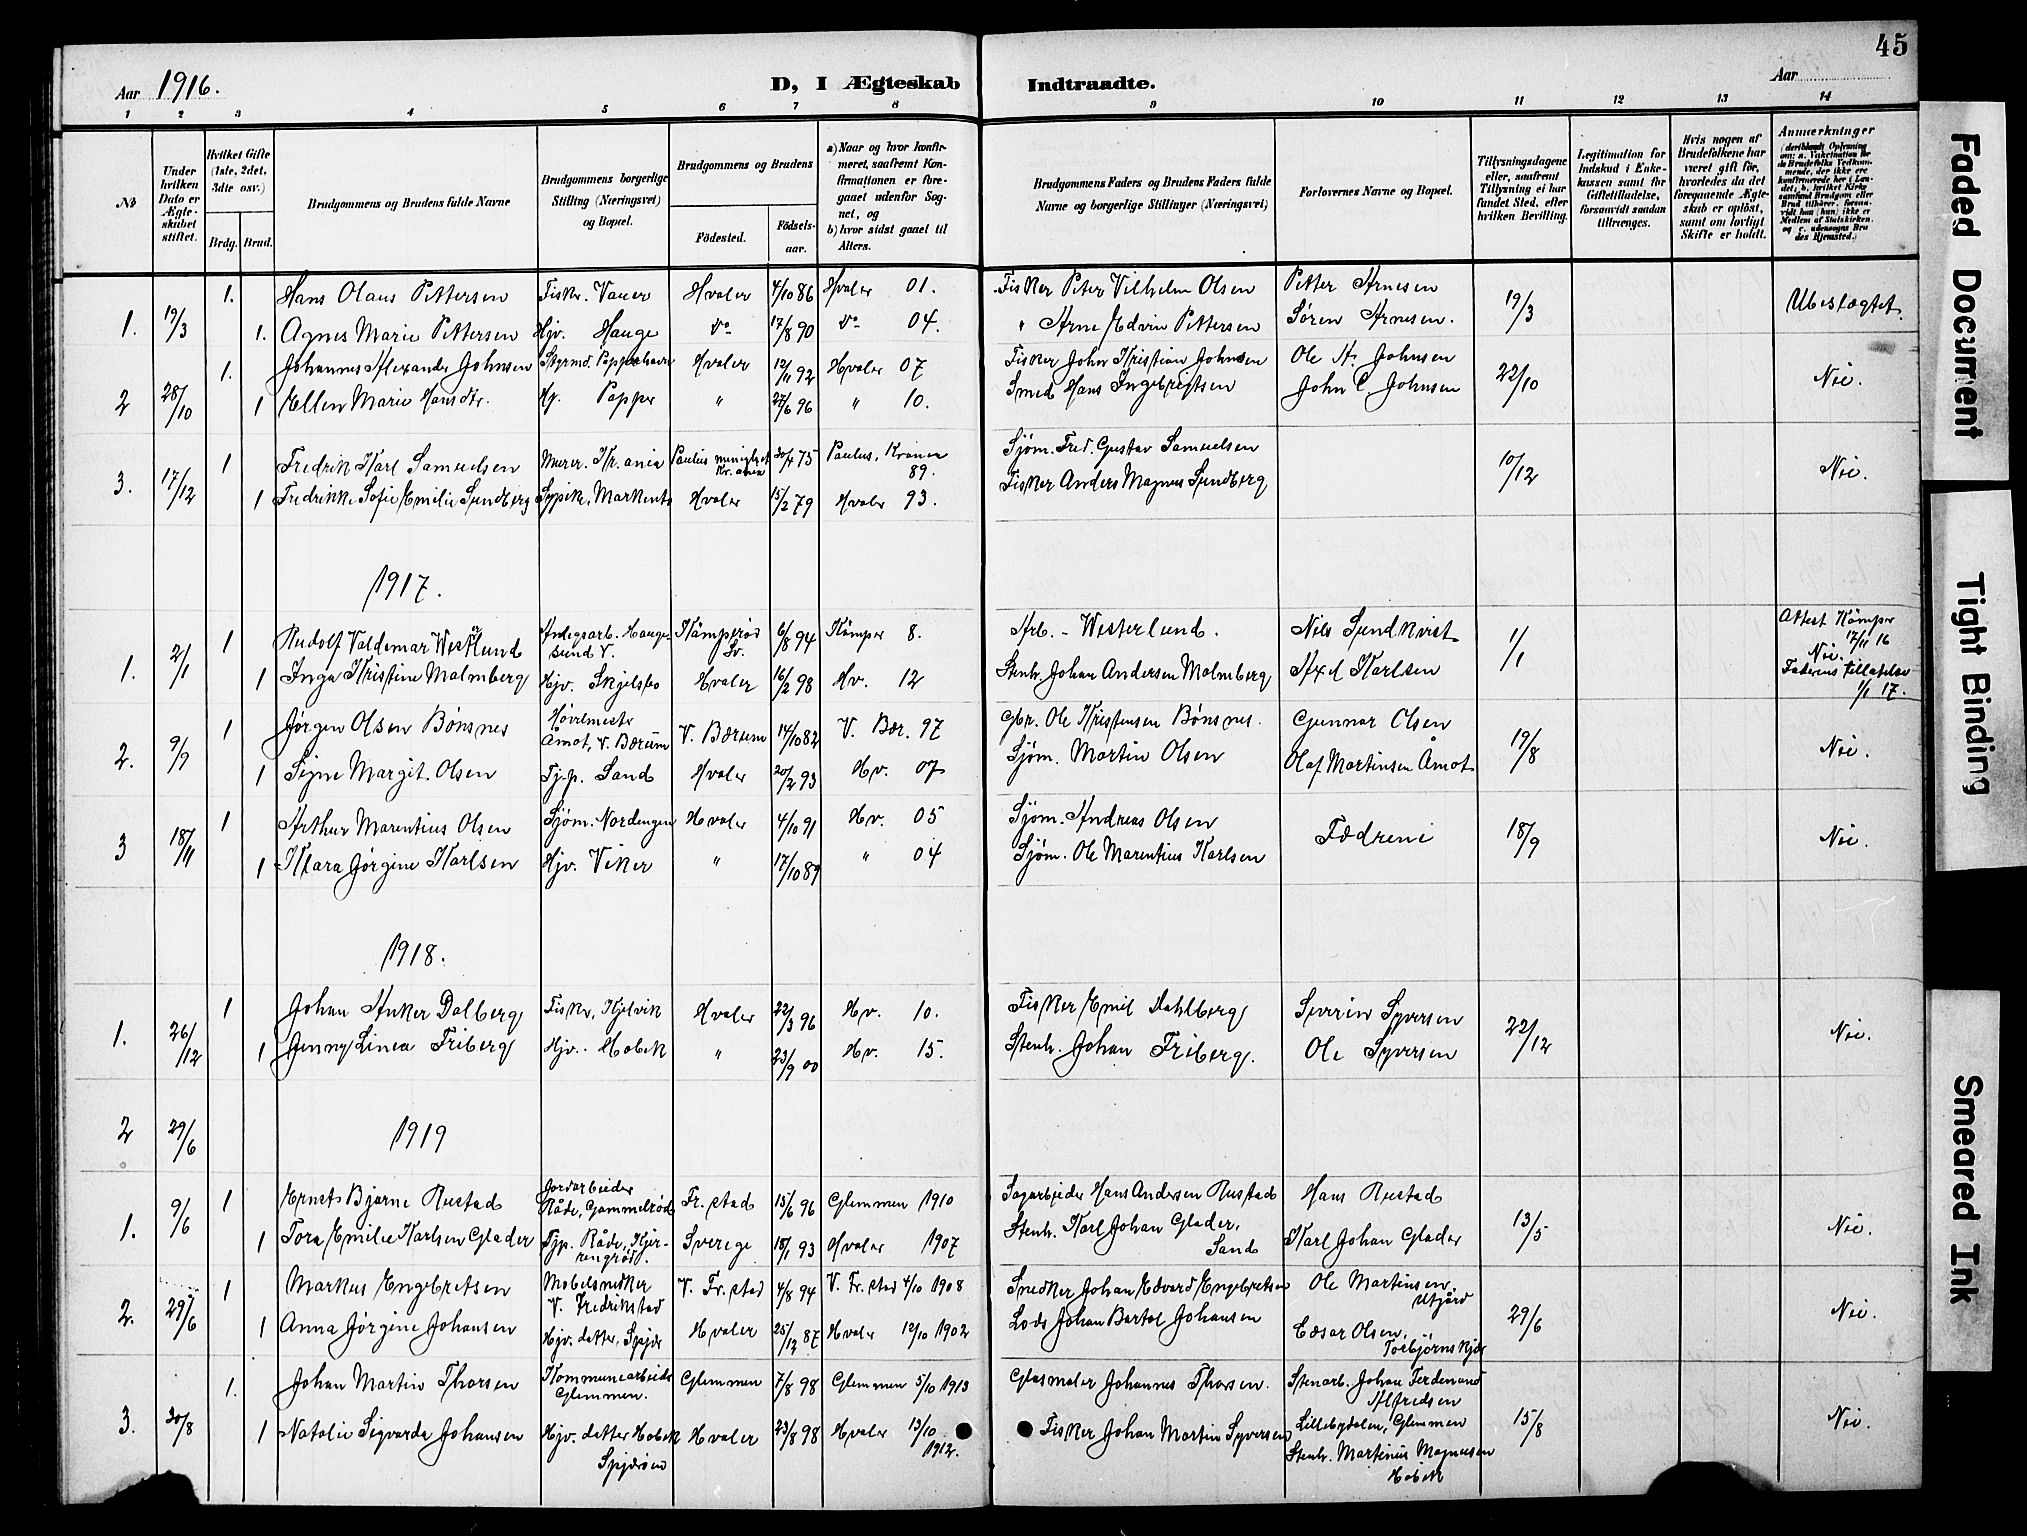 45
Aar 1916. D, I Ægteskab Indtraadte. Aar
1 2 3 4 5 6 7 8 9 10 11 12 13 14
No
Under hvilken Dato er Ægteskabet stiftet.
Hvilket Gifte (1ste, 2det, 3die osv.)
Brdg. Brud.
Brudgommens og Brudens fulde Navne
Brudgommens borgerlige Stilling (Næringsvei) og Bopæl.
Brudgommens og Brudens
Fødested. Fødselsaar.
a) Naar og hvor konfirmeret, saafremt Konfirmationen er foregaaet udenfor Sognet, og
b) hvor sidst gaaet til Alters.
Brudgommens Faders og Brudens Faders fulde Navne og borgerlige Stillinger (Næringsvei)
Forlovernes Navne og Bopæl.
Tillysningsdagene eller, saafremt Tillysning ei har fundet Sted, efter hvilken Bevilling.
Legitimation for Indskud i Enkekassen samt for Giftetilladelse, forsaavidt saadan tiltrænges.
Hvis nogen af Brudefolkene har været gift før, hvorledes da det foregaaende Ægteskab er opløst, samt om lovligt Skifte er holdt.
Anmærkninger
(deriblandt Oplysning om: a. Vakcination for de Brudefolks Vedkommende, der ikke ere konfirmerede her i Landet; b. hvilket Kirkesamfund Brudgom eller Brud tilhører, forsaavidt han (hun) ikke er Medlem af Statskirken, og c. udensogns Brudes Hjemsted.)
1. 19/3 1. Hans Olaus Pettersen Fisker. Vauer Hvaler 4/10 86 Hvaler 01. Fisker Peter Vilhelm Olsen Petter Arnesen 19/3 Ubeslægtet.
1. Agnes Marie Pettersen Hjv. Hauge Do 17/8 90 Do 04. " Arne Edvin Pettersen Søren Arnesen.
2 28/10 1. Johannes Alexander Johnsen Papperhavn Hvaler 12/11 92 Hvaler 07 Fisker John Kristian Johnsen Ole A. Johnsen 22/10 Nei.
1 Ellen Marie Hansdtr. Papper " 27/6 96 " 10. Smed Hans Ingebrigtsen John C. Johnsen
3. 17/12 1 Fredrik Karl Samuelsen Murer. Kr.ania Paulus menighet Kr.ania 20/4 75 Paulus, Krania 89. Sjøm. Fred. Gustav Samuelsen 10/12 Nei.
1 Fredrikke Sofie Emilie Sundberg Sypik. Hvaler 15/2 79 Hvaler 93. Fisker Anders Magnus Sundberg
1917.
1. 2/1 1 Rudolf Valdemar Westerlund Anlegsarb. Haugesund V. Kämperöd Sv. 6/8 94 Kämper 8. Arb. - Westerlund. Nils Sundkvist 1/1 Attest Kämper 17/11 16
Nei.
1 Inga Kristine Malmberg Hjv. Skjelsbo Hvaler 16/2 98 Hv. 12 Stenh. Johan Andersen Malmberg Axel Karlsen Faderens tilladelse 1/1 17.
2. 9/9 1 Jørgen Olsen Bønsnes Høvlmestr Åmot, V. Bærum V. Bærum 14/10 82 V. Bær. 97 Gbr. Ole Kristensen Bønsnes. Gunnar Olsen 19/8 Nei.
1 Signe Margit Olsen Tj.p. Sand Hvaler 20/2 93 Hv. 07 Sjøm. Martin Olsen Olaf Martinsen Åmot
3 18/11 1 Arthur Marentius Olsen Sjøm. Nordengen Hvaler 4/10 91 Hv. 05 Sjøm. Andreas Olsen Fædrene 18/9 Nei.
1 Klara Jørgine Karlsen Hjv. Viker " 17/10 89 " 04 Sjøm. Ole Marentius Karlsen
1918.
1. 26/12 1 Johan Anker Dalberg Fisker, Kjølvik Hvaler 22/3 96 Hv. 10. Fisker Emil Dahlberg Severin Syversen 22/12 Nei.
1 Jenny Linea Friberg Hjv. Hobek " 23/9 00 Hv. 15. Stenh. Johan Friberg. Ole Syversen
2 29/6 1919
1. 9/6 1 Ernst Bjarne Rustad Jordarbeider Råde, Gammelrød Fr.stad 15/6 96 Glemmen 1910 Sagarbeider Hans Andersen Rustad Hans Rustad 13/5 Nei.
1 Tora Emilie Karlsen Glader Tjp. Råde, Sverige 18/1 93 Hvaler 1907 Stenh. Karl Johan Glader, Sand Karl Johan Glader
2. 29/6 1 Markus Engebretsen Møbelsnedker V. Fredrikstad V. Fr.stad 4/8 94 V. Fr.stad 4/10 1908 Snedker Johan Edvard Engebretsen Ole Martinsen, Utgård 29/6 Nei.
1 Anna Jørgine Johansen Hjv. datter, Spjær Hvaler 25/12 87 Hvaler 12/10 1902 Lods Johan Bartol Johansen Cæsar Olsen, Torbjørnskjær
3. 30/8 1. Johan Martin Thorsen Kommunearbeider Glemmen. Glemmen 7/8 98 Glemmen 5/10 1913 Glasmaler Johannes Thorsen. Stenarb. Johan Ferdinand Alfredsen Lillebydalen, Glemmen 15/8 Nei.
1 Natalie Sigvarda Johansen Hjv. datter Hobek Spjærøen Hvaler 23/8 98 Hvaler 13/10 1912. Fisker Johan Martin Syversen Stenh. Martinius Magnussen Hobek
Faded Document
Tight Binding
Smeared Ink